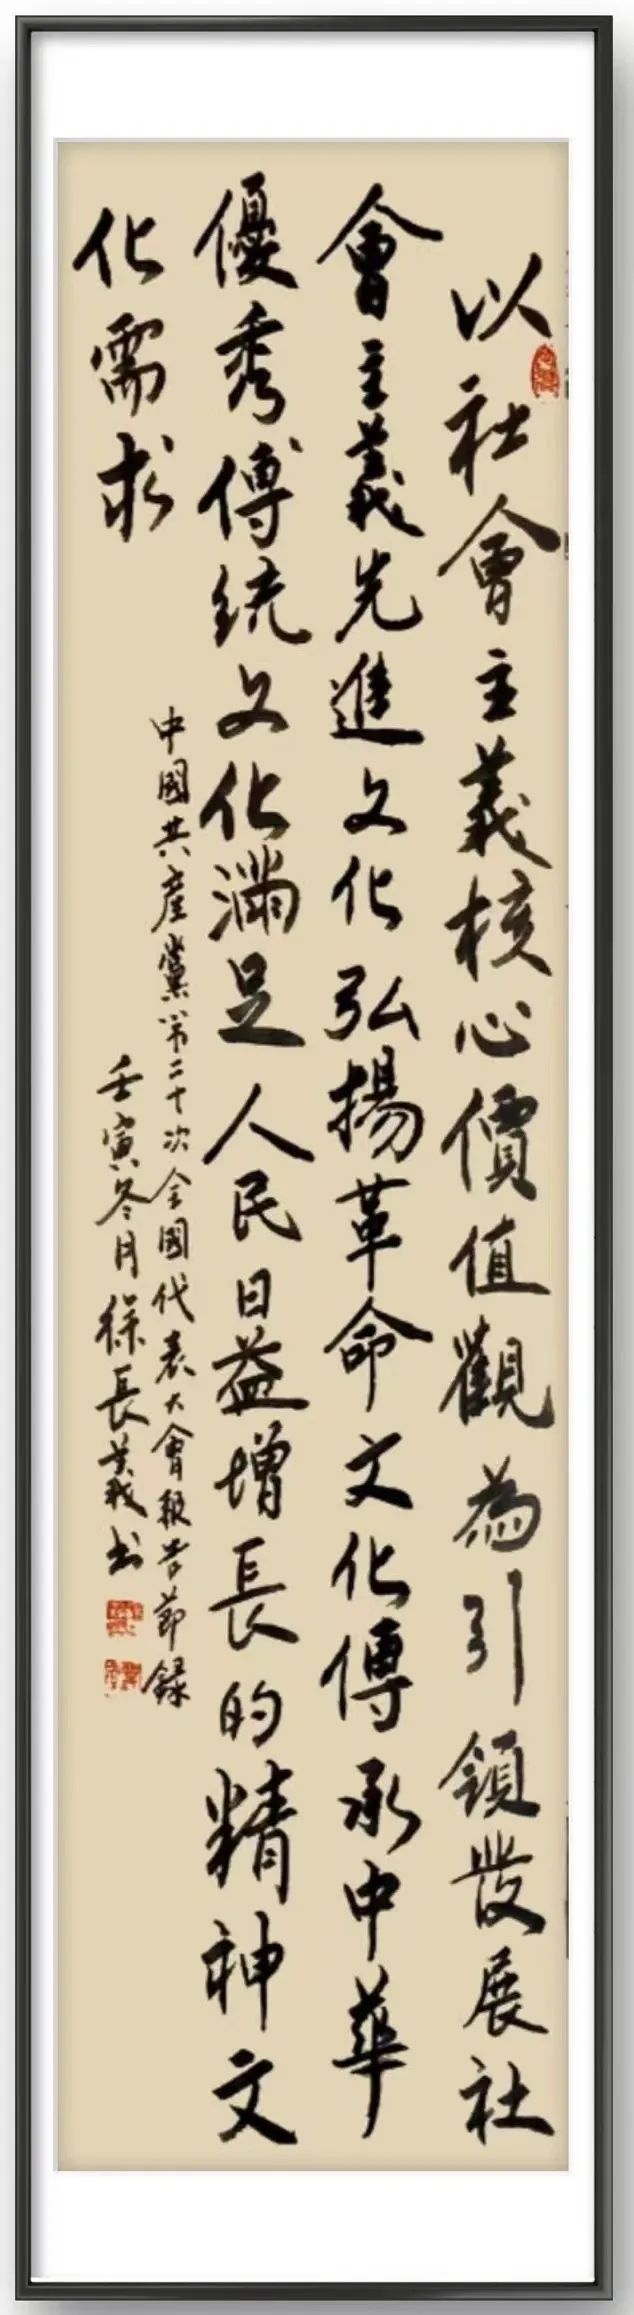 以社會主義核心價值觀為引領發展社
會主義先進文化弘揚革命文化傳承中華
優秀傳統文化滿足人民日益增長的精神文
化需求
中國共產黨第二十次全國代表大會報告節録
壬寅冬月徐長義书